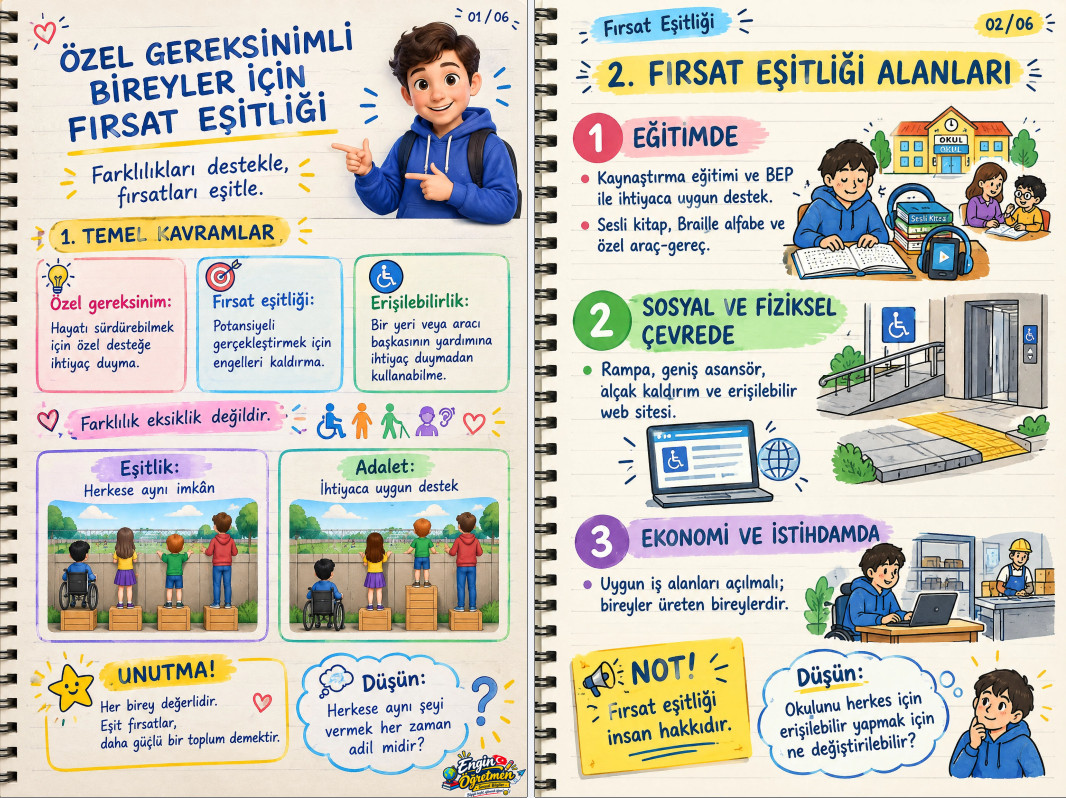 01/06
ÖZEL GEREKSİNİMLİ
BİREYLER İÇİN
FIRSAT EŞİTLİĞİ
Farklılıkları destekle,
fırsatları eşitle.
1. TEMEL KAVRAMLAR
Özel gereksinim:
Hayatı sürdürebilmek
için özel desteğe
ihtiyaç duyma.
Fırsat eşitliği:
Potansiyeli
gerçekleştirmek için
engelleri kaldırma.
Erişilebilirlik:
Bir yeri veya aracı
başkasının yardımına
ihtiyaç duymadan
kullanabilme.
Farklılık eksiklik değildir.
Eşitlik:
Herkese aynı imkân
Adalet:
İhtiyaca uygun destek
UNUTMA!
Her birey değerlidir.
Eşit fırsatlar,
daha güçlü bir toplum demektir.
Düşün:
Herkese aynı şeyi
vermek her zaman
adil midir?
?
Engin
Öğretmen
Fırsat Eşitliği
02/06
2. FIRSAT EŞİTLİĞİ ALANLARI
1 EĞİTİMDE
OKUL
OKUL
Kaynaştırma eğitimi ve BEP
ile ihtiyaca uygun destek.
Sesli kitap, Braille alfabe ve
özel araç-gereç.
Sesli Kitap
2 SOSYAL VE FİZİKSEL
ÇEVREDE
Rampa, geniş asansör,
alçak kaldırım ve erişilebilir
web sitesi.
3 EKONOMİ VE İSTİHDAMDA
Uygun iş alanları açılmalı;
bireyler üreten bireylerdir.
NOT!
Fırsat eşitliği
insan hakkıdır.
Düşün:
Okulunu herkes için
erişilebilir yapmak için
ne değiştirilebilir?